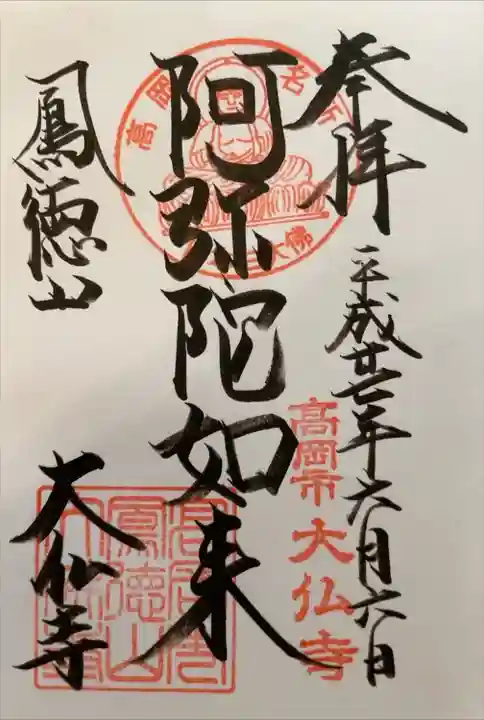 奉拝
平成廿七年六月六日
高岡市大仏寺
阿弥陀如来
高岡名所
大佛
鳳徳山
大仏寺